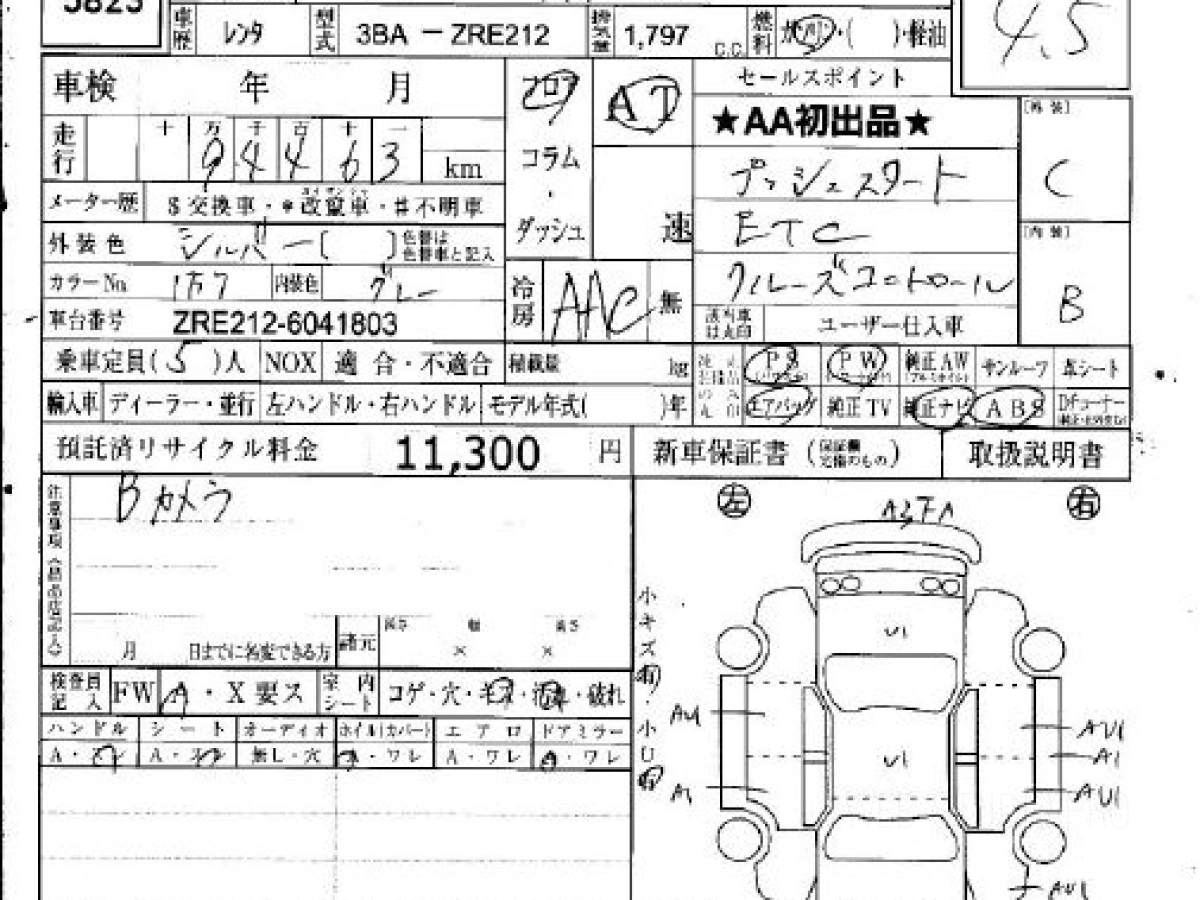 5823
車歴 レンタ 型式 3BA － ZRE212 排気量 1,797 C.C. 燃料 ガソリン・( )・軽油
4.5
車検 年 月
フロア
コラム
・
ダッシュ
AT
速
セールスポイント
★AA初出品★
プッシュスタート
ETC
クルーズコントロール
該当車は丸印 ユーザー仕入車
[外装]
C
[内装]
B
走行 十 万 千 百 十 一
9 4 4 6 3 km
メーター歴 $交換車・*改竄車・#不明車
外装色 シルバー[ ]色替は色替車と記入
カラーNo. 1F7 内装色 グレー
車台番号 ZRE212-6041803
冷房 AAC 無
乗車定員(5)人 NOX 適合・不適合 積載量 kg
PS PW 純正AW サンルーフ 革シート
輸入車 ディーラー・並行 左ハンドル・右ハンドル モデル年式( )年
エアバッグ 純正TV 純正ナビ ABS
預託済リサイクル料金 11,300 円 新車保証書 取扱説明書
注意事項（出品店記入）
Bカメラ
月 日までに名変できる方 諸元 長さ 幅 高さ
× ×
検査員記入 FW A・X要ス 室内シート コゲ・穴・キズ・汚れ・破れ
ハンドル シート オーディオ ホイル(カバー) エアロ ドアミラー
A・スレ A・スレ 無し・穴 A・ワレ A・ワレ A・ワレ
小キズ有
小U有
左 右
U1
U1
AU1
A1
AU1
AU1